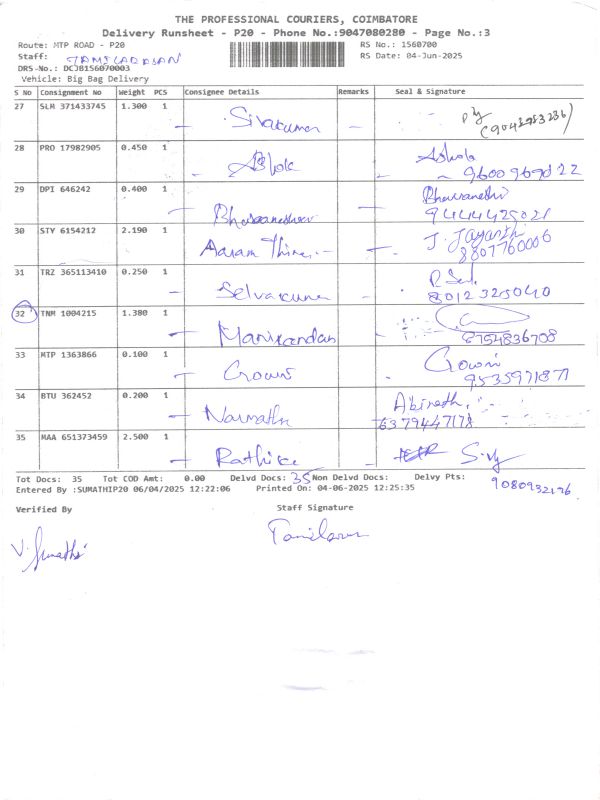 THE PROFESSIONAL COURIERS, COIMBATORE
Delivery Runsheet - P20 - Phone No.:9047080280 - Page No.:3
Route: MTP ROAD - P20 RS No.: 1560700
Staff: TAMILARASAN RS Date: 04-Jun-2025
DRS-No.: DCJB156070003
Vehicle: Big Bag Delivery
S No Consignment No Weight PCS Consignee Details Remarks Seal & Signature
27 SLM 371433745 1.300 1 Sivakumar
28 PRO 17982905 0.450 1 Ashok Ashok
9600969022
29 DPI 646242 0.400 1
9444425021
30 STY 6154212 2.190 1 Aaram Thinai J. Jayanthi
8807760006
31 TRZ 365113410 0.250 1 Selvakumar
8012325040
32 TNM 1004215 1.380 1 Manikandan
8754836708
33 MTP 1363866 0.100 1 Crown Crown
9535971877
34 BTU 362452 0.200 1 Narmatha Abinath
6379447178
35 MAA 651373459 2.500 1 Rathika
Tot Docs: 35 Tot COD Amt: 0.00 Delvd Docs: 35 Non Delvd Docs: Delvy Pts:
9080932176
Entered By :SUMATHIP20 06/04/2025 12:22:06 Printed On: 04-06-2025 12:25:35
Verified By Staff Signature
V. Sumathi Tamilarasan